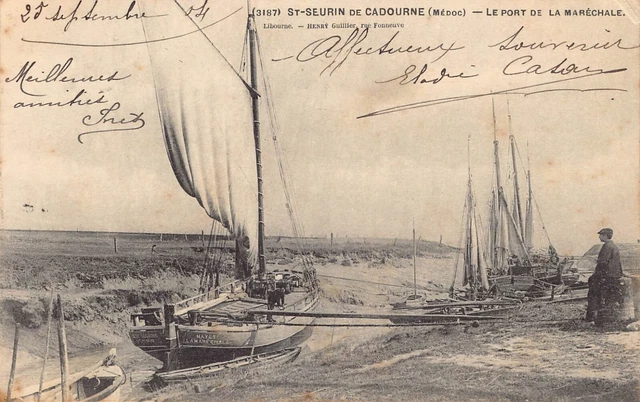 25 septembre 04
(3187) ST-SEURIN DE CADOURNE (MÉDOC) — LE PORT DE LA MARÉCHALE.
Libourne. — HENRY Guillier, rue Fonneuve
Affectueux souvenir
Meilleures
amitiés
LAMARÉCHALE